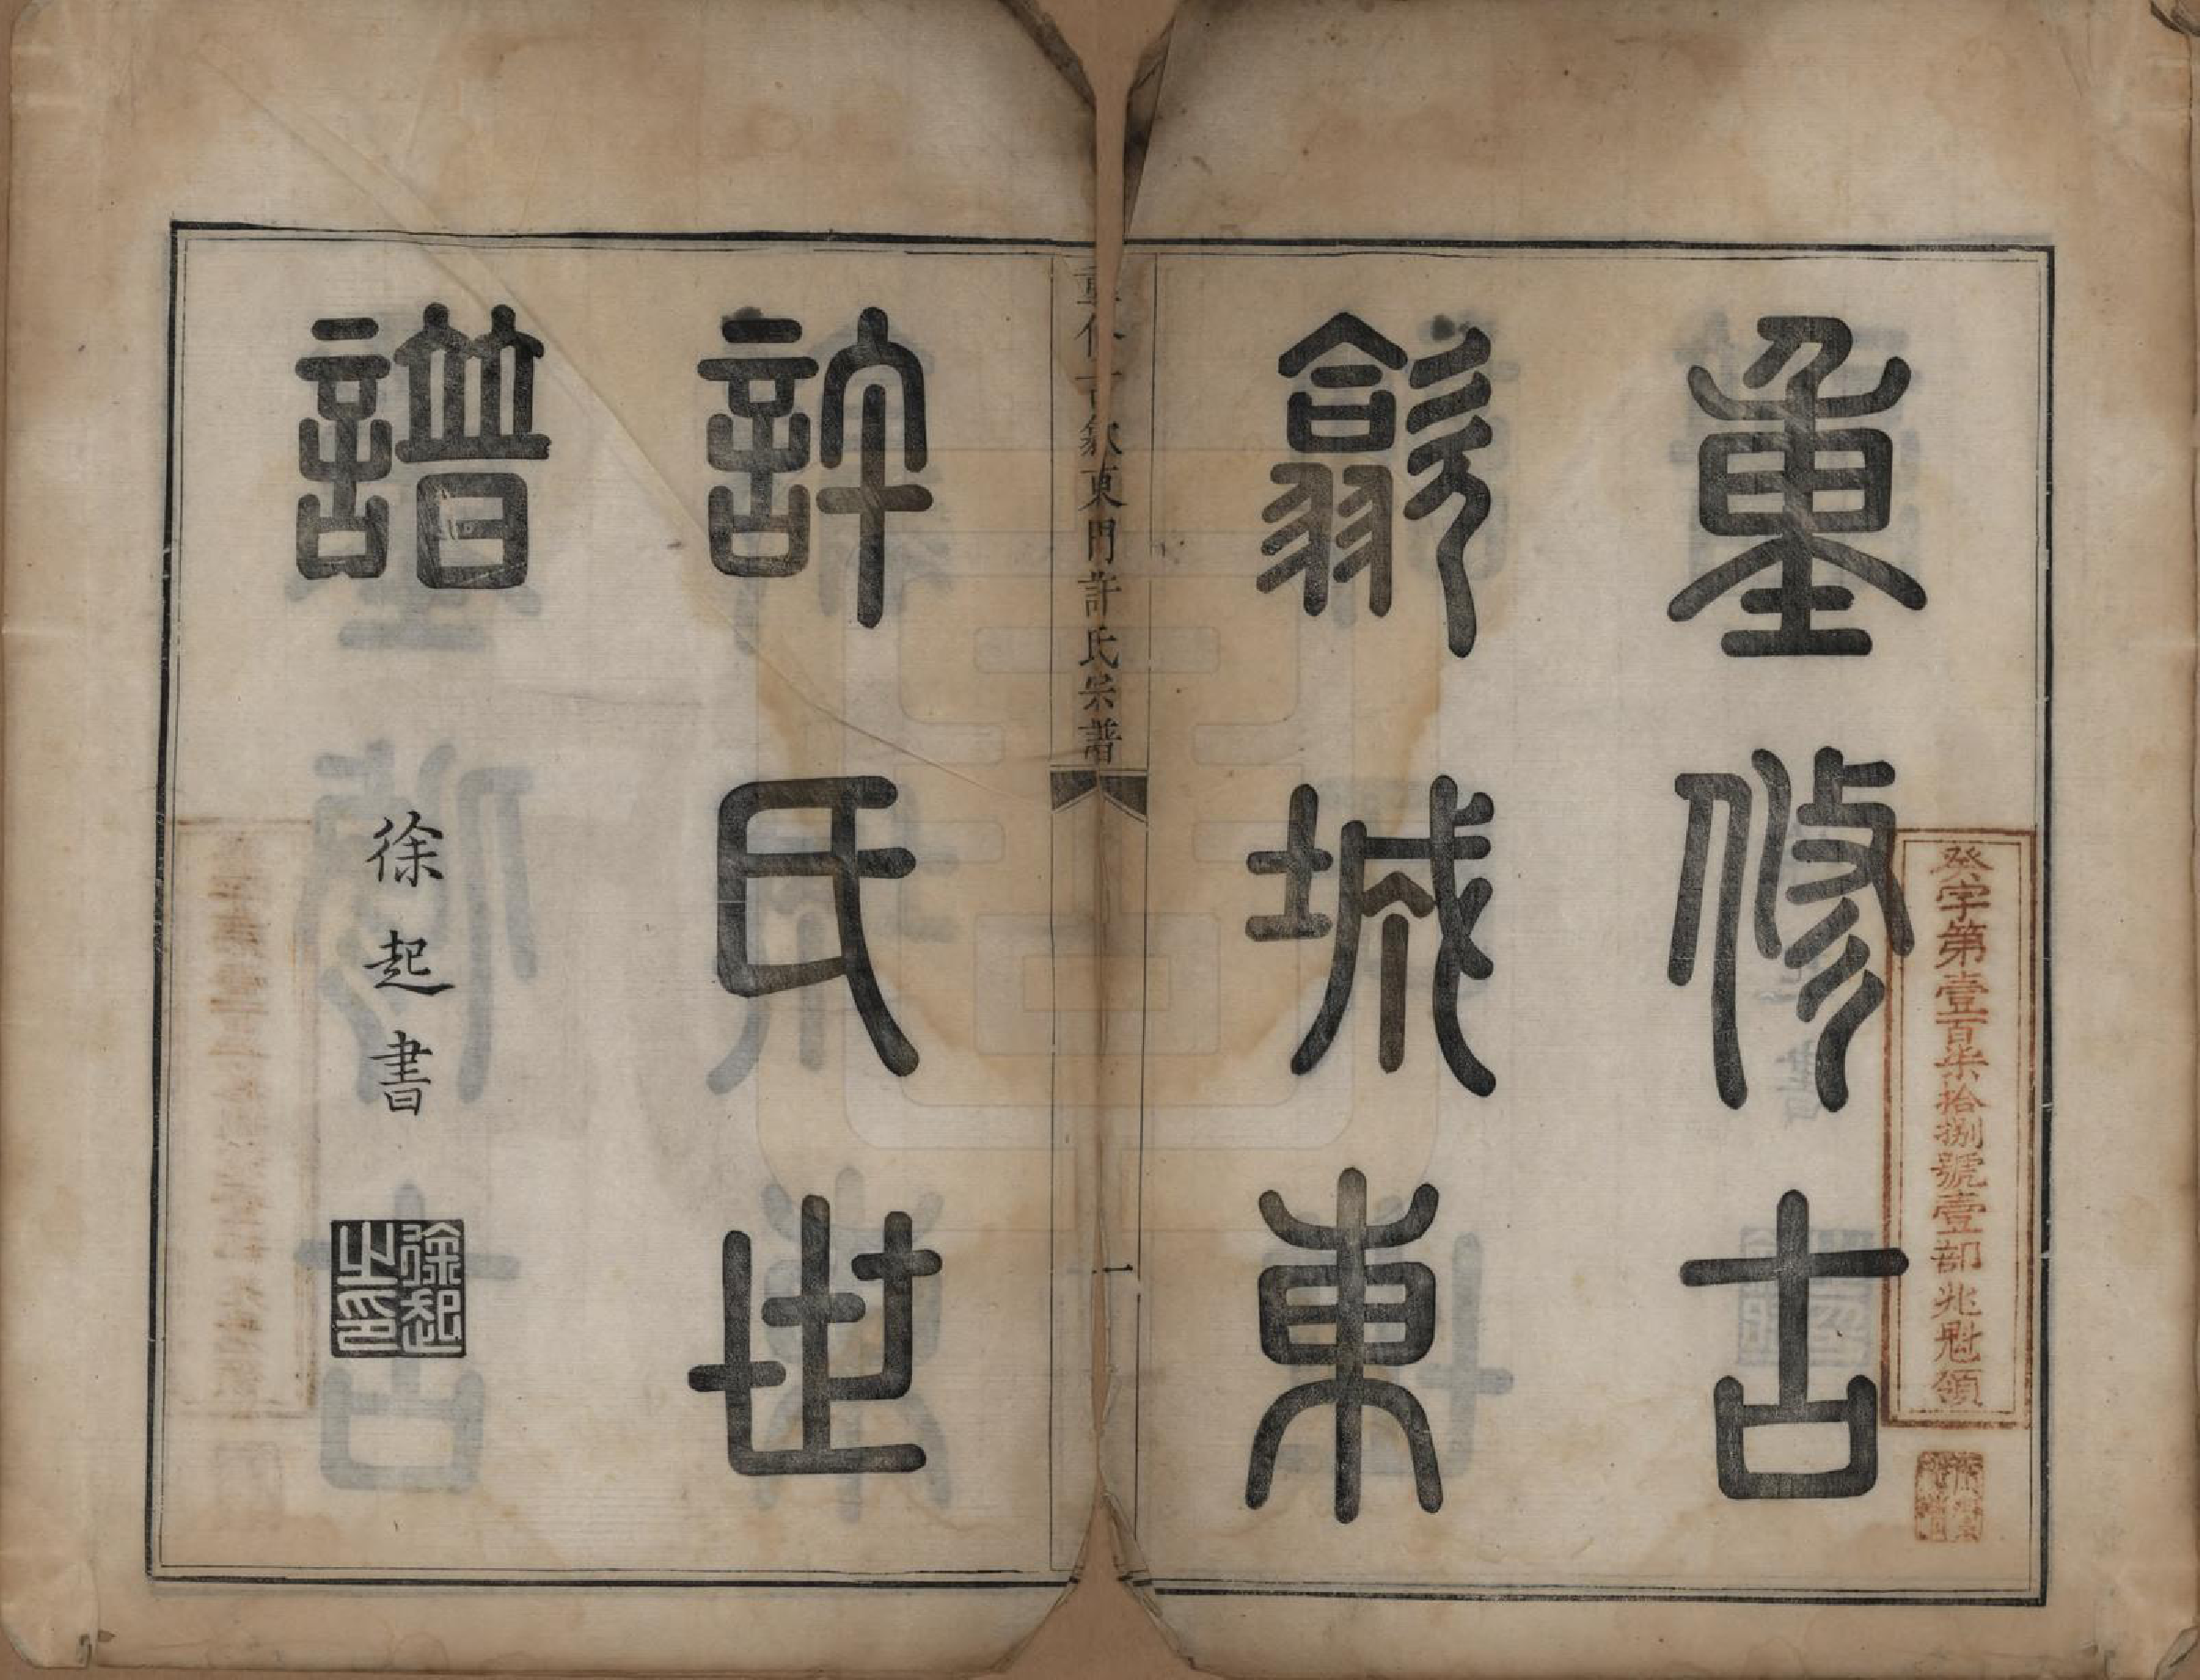 重修古
歙城東
許氏世
譜
徐起書
徐起之印
重修古歙東門許氏宗譜
一
癸字第壹百柒拾捌號壹部兆魁領